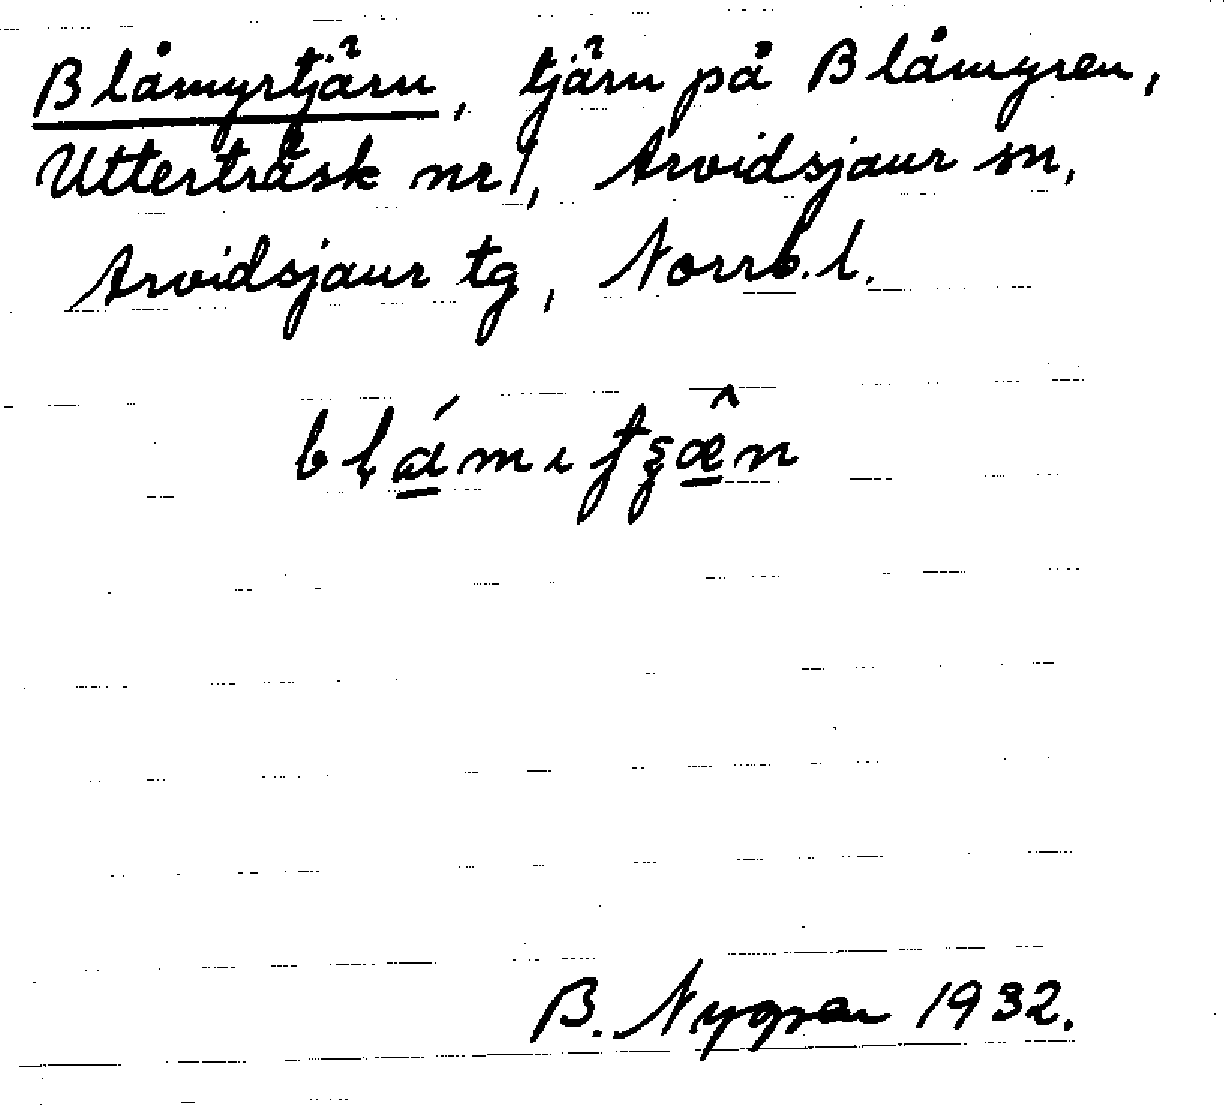 Blåmyrtjärn, tjärn på Blåmyren,
Utterträsk nr 1, Arvidsjaur sn,
Arvidsjaur tg, Norrb. l.
B. Nygren 1932.